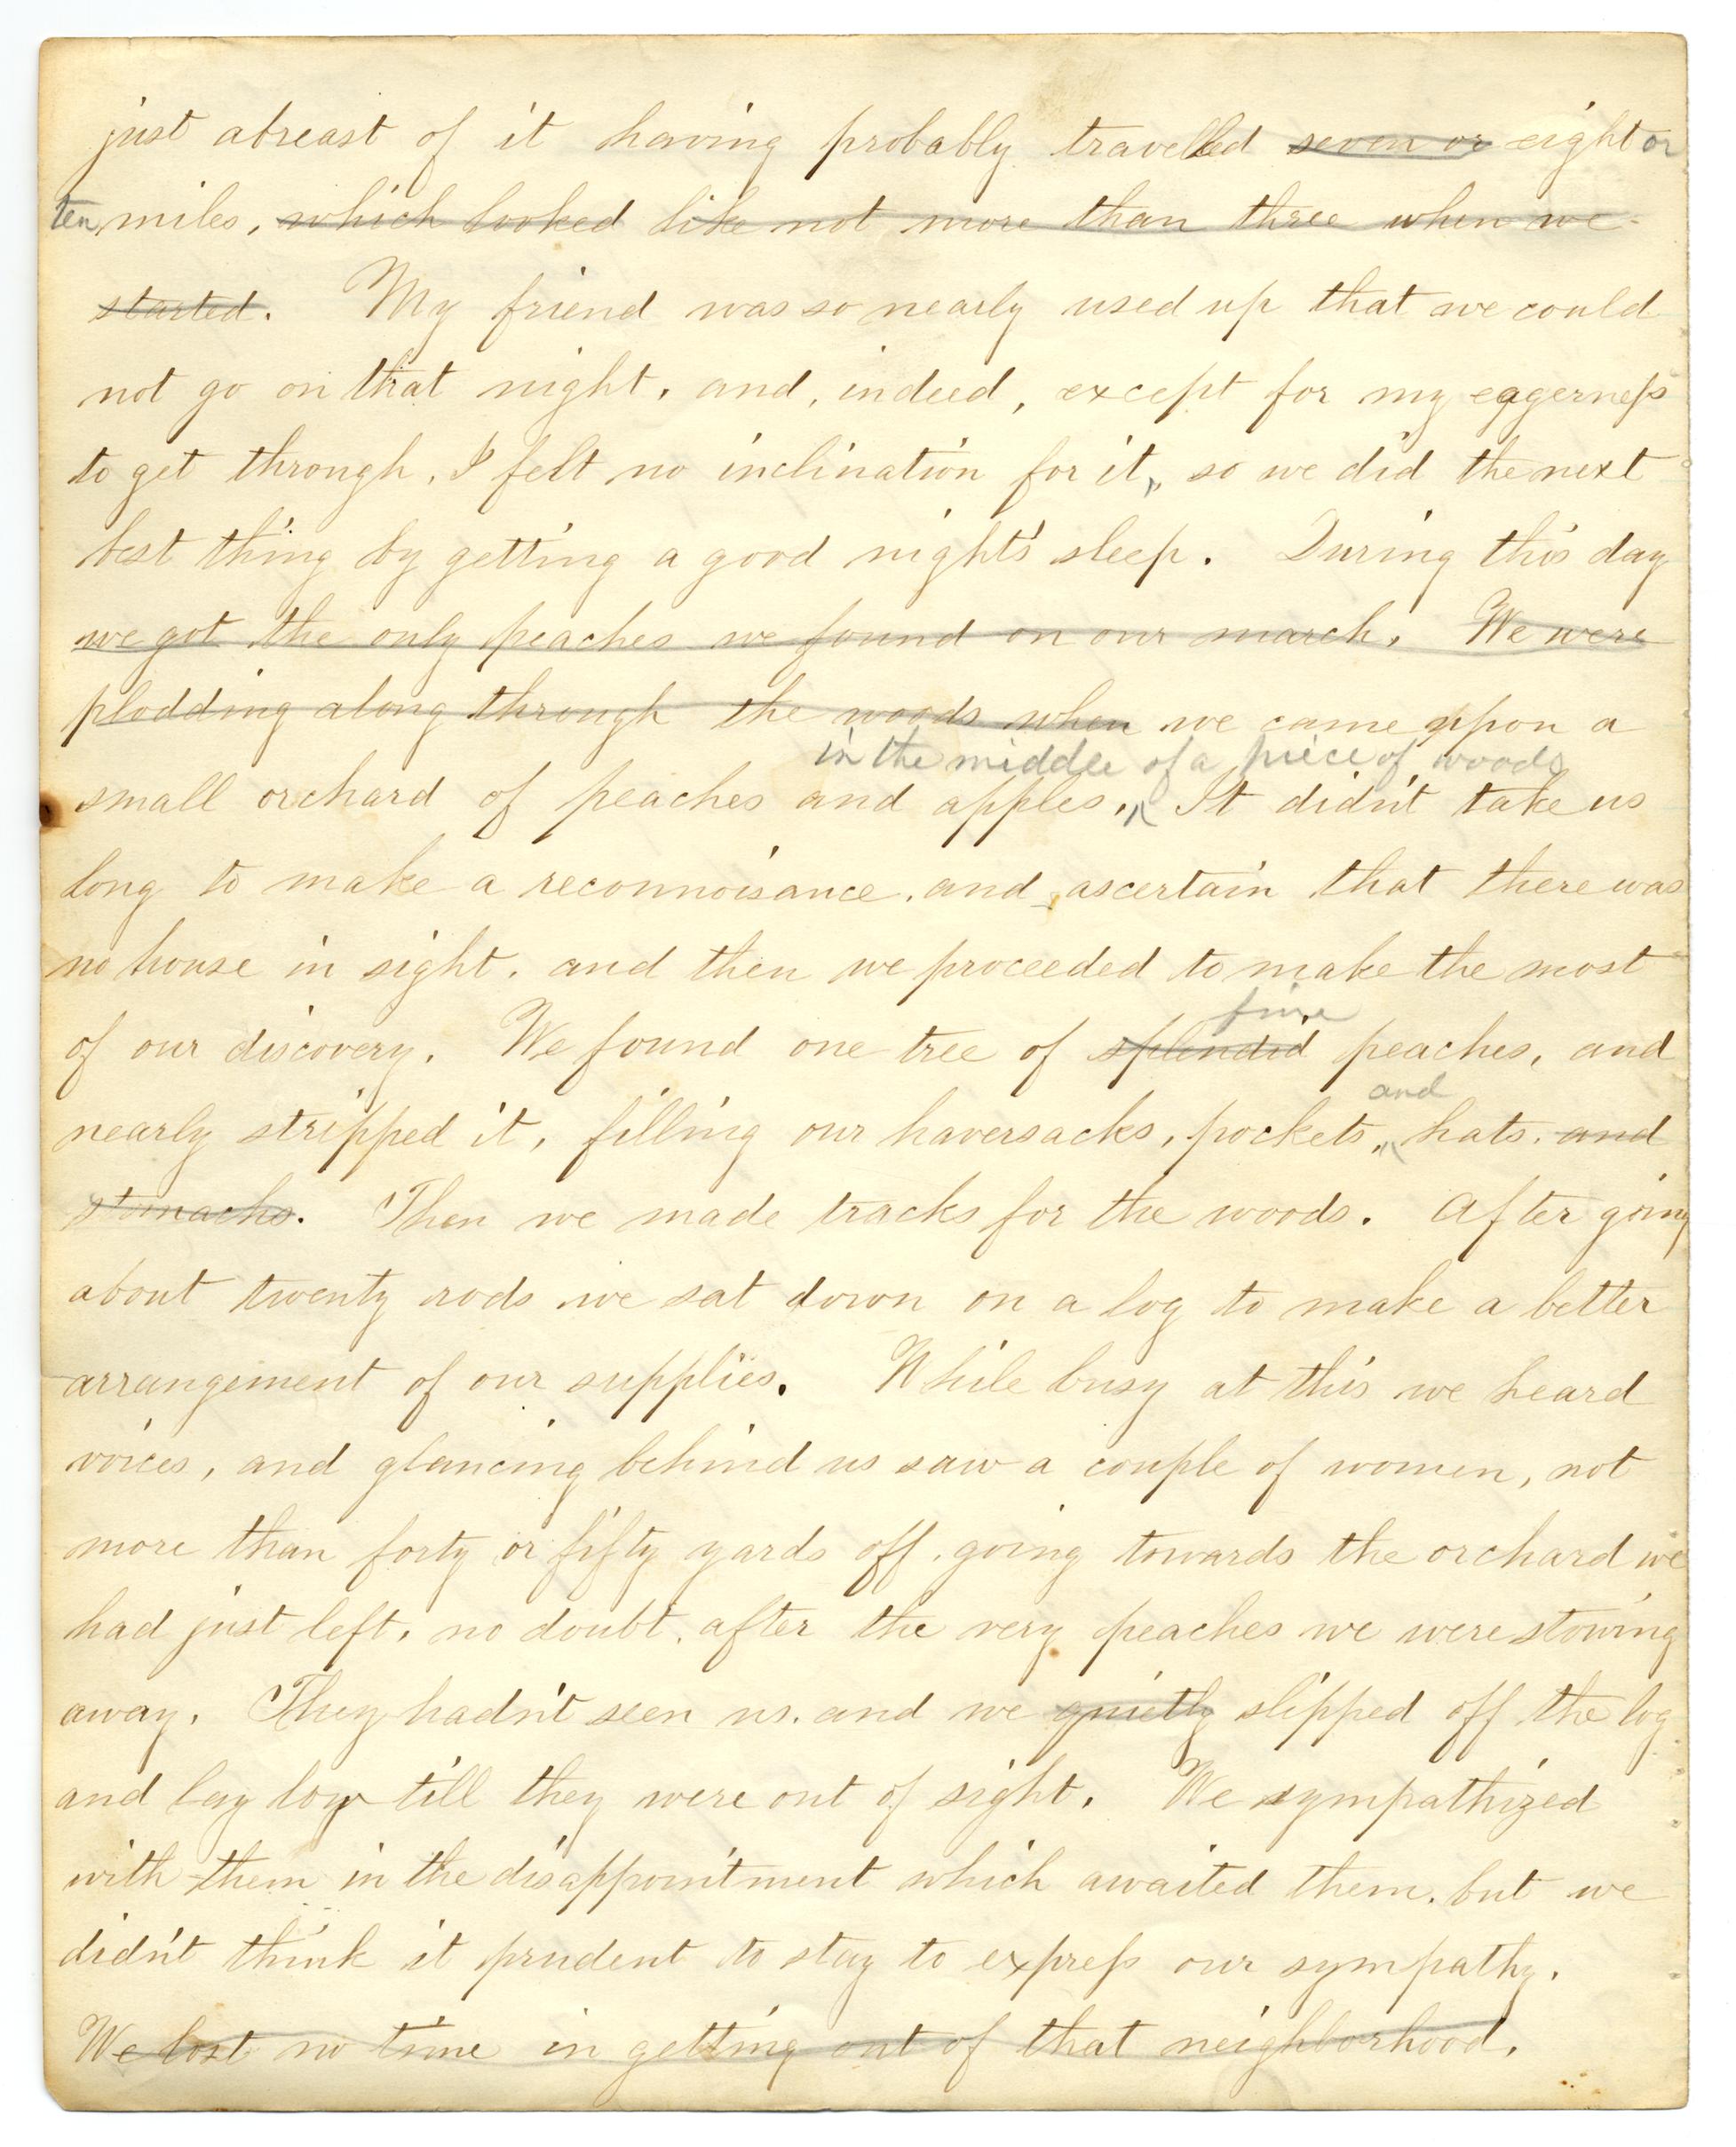 just abreast of it having probably travelled seven or eight or
ten miles, which looked like not more than three when we
started. My friend was so nearly used up that we could
not go on that night, and, indeed, except for my eagerness
to get through, I felt no inclination for it, so we did the next
best thing by getting a good night's sleep. During this day
we got the only peaches we found on our march. We were
plodding along through the woods when we came upon a
in the middle of a piece of woods
small orchard of peaches and apples. It didn't take us
long to make a reconnoisance, and ascertain that there was
no house in sight, and then we proceeded to make the most
fine
of our discovery. We found one tree of splendid peaches, and
and
nearly stripped it, filling our haversacks, pockets, hats, and
stomachs. Then we made tracks for the woods. After going
about twenty rods we sat down on a log to make a better
arrangement of our supplies. While busy at this we heard
voices, and glancing behind us saw a couple of women, not
more than forty or fifty yards off, going towards the orchard we
had just left, no doubt, after the very peaches we were stowing
away. They hadn't seen us, and we quietly slipped off the log
and lay low till they were out of sight. We sympathized
with them in the disappointment which awaited them, but we
didn't think it prudent to stay to express our sympathy.
We lost no time in getting out of that neighborhood.